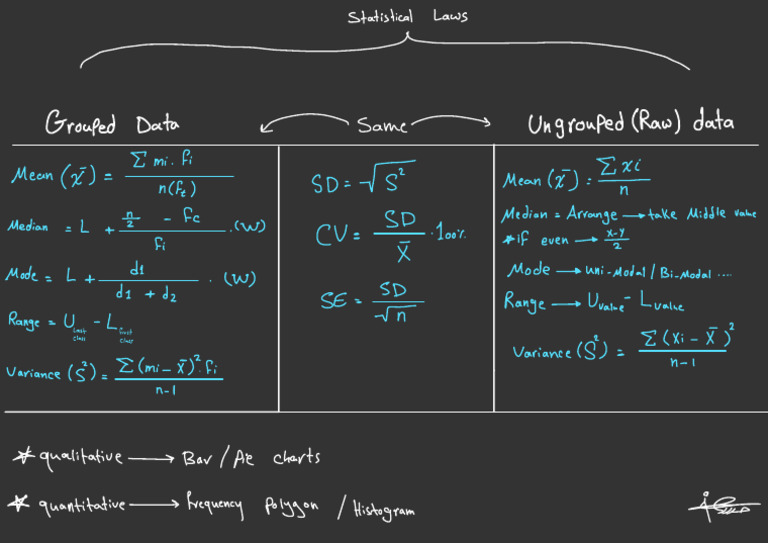 Statistical Laws
Grouped Data
Same
Ungrouped (Raw) data
Mean (x̄) = Σ mi. fi / n(ft)
Median = L + (n/2 - Fc) / fi . (W)
Mode = L + d1 / (d1 + d2) . (W)
Range = U Last class - L first class
Variance (S²) = Σ (mi - x̄)². fi / n-1
SD = √S²
CV = SD / X̄ . 100%
SE = SD / √n
Mean (x̄) = Σ xi / n
Median = Arrange → take Middle value
* if even → x-y / 2
Mode → Uni-Modal / Bi-Modal ....
Range → U value - L value
Variance (S²) = Σ (xi - X̄)² / n-1
* qualitative → Bar / Pie charts
* quantitative → frequency Polygon / Histogram